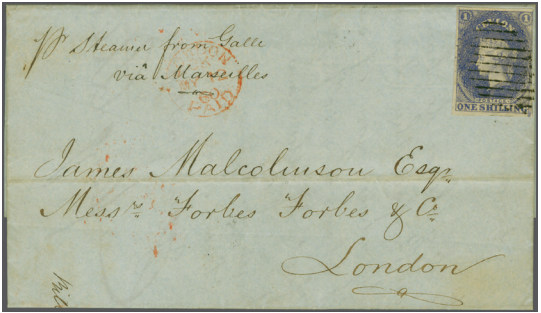 pr Steamer from Galle
viâ Marseilles
1 CEYLON 1
POSTAGE
ONE SHILLING
LONDON
PAID
James Malcolmson Esqr
Messrs Forbes Forbes & Co
London